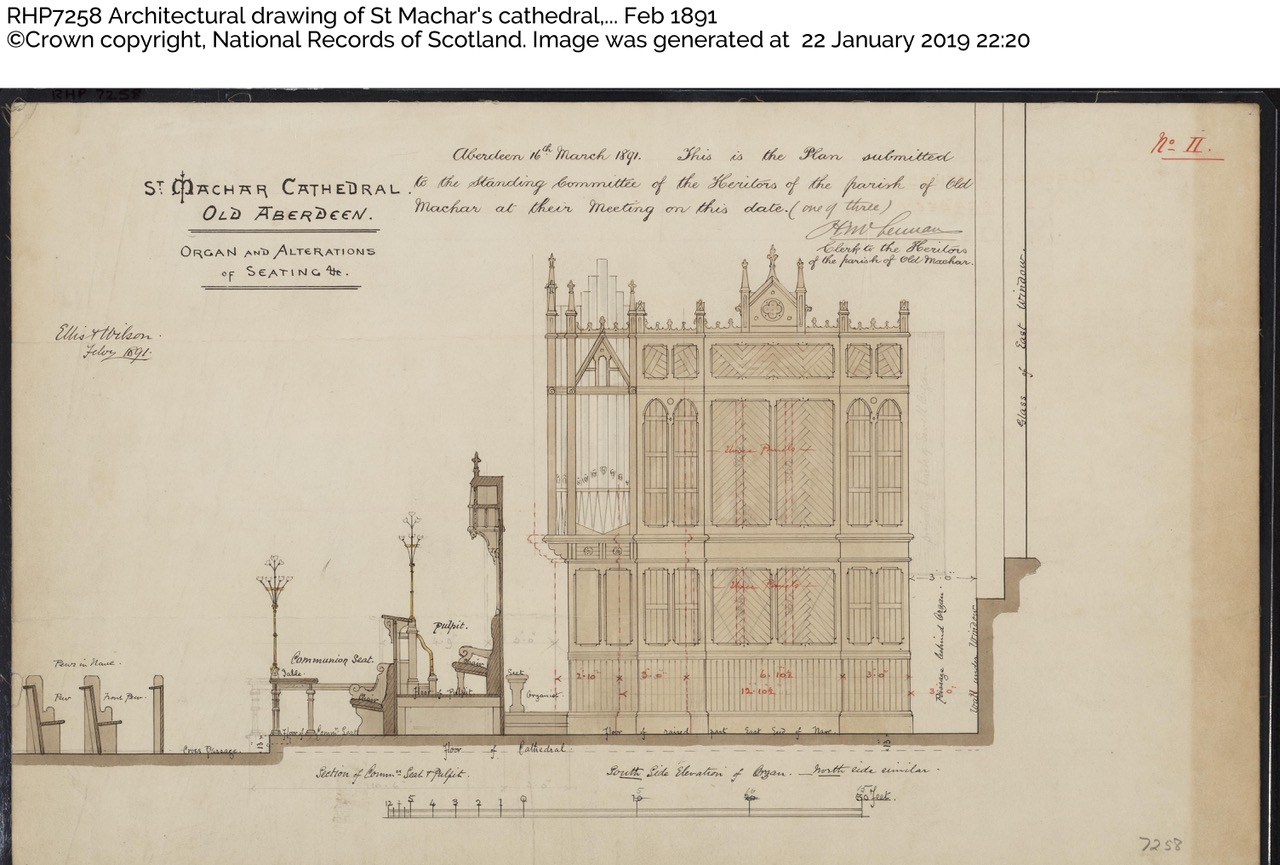 RHP7258 Architectural drawing of St Machar's cathedral,... Feb 1891
©Crown copyright, National Records of Scotland. Image was generated at 22 January 2019 22:20
RHP 7258
No II.
Aberdeen 16th March 1891. This is the Plan submitted
to the Standing Committee of the Heritors of the parish of Old
Machar at their Meeting on this date. (one of three)
Clerk to the Heritors
of the parish of Old Machar.
ST MACHAR CATHEDRAL.
OLD ABERDEEN.
ORGAN AND ALTERATIONS
OF SEATING &c.
Ellis & Wilson.
Feby 1891.
Glass of East Window.
Three Panels
Three Panels
3' 0"
Passage behind Organ.
Wall under Window
Pulpit.
Communion Seat.
Table
Chair
Chair
Floor of Pulpit
Seat
Organist
Pews in Nave.
Pew
Front Pew
2' 10"
3' 0"
6' 10½
3' 0"
12' 10½
3' 0"
Floor of Commn Seat
Cross Passage
Floor of raised part East End of Nave
Floor of Cathedral
Section of Commn Seat & Pulpit.
South Side Elevation of Organ. — North side similar.
5 4 3 2 1 0
Feet.
7258